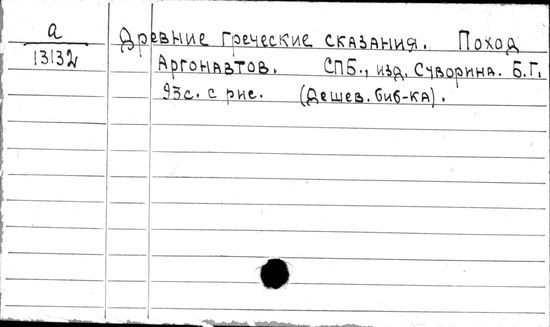 а
13132
Древние греческие сказания. Поход
Аргонавтов. СПБ., изд. Суворина. Б.Г.
93с. с рис. (Дешев. биб-ка).